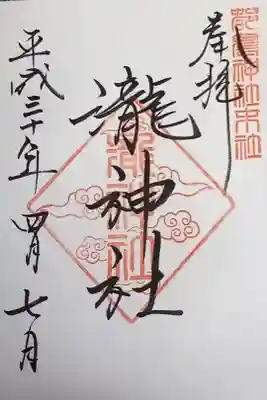 都農神社末社
奉拝
瀧神社
瀧神社
平成三十年 四月 七日